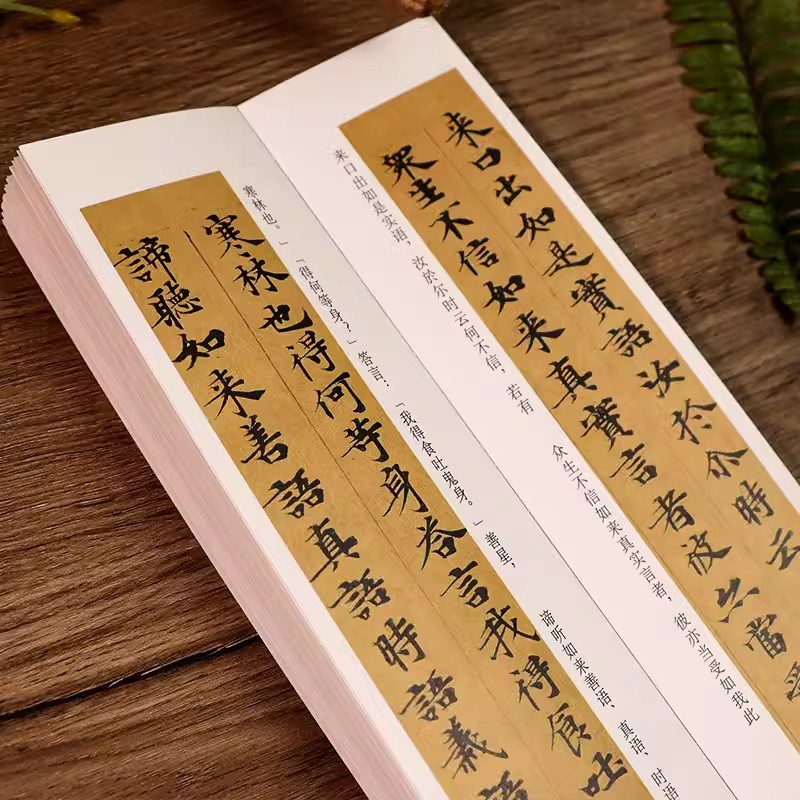 来口出如是實語汝於尒時云
衆生不信如来真實言者彼亦當受
来口出如是实语，汝於尔时云何不信，若有
众生不信如来真实言者，彼亦当受如我此
寒林也。」「得何等身？」答言：「我得食吐鬼身。」善星，
谛听如来善语、真语、时语
寒林也得何等身答言我得食吐
諦聽如来善語真語時語義語